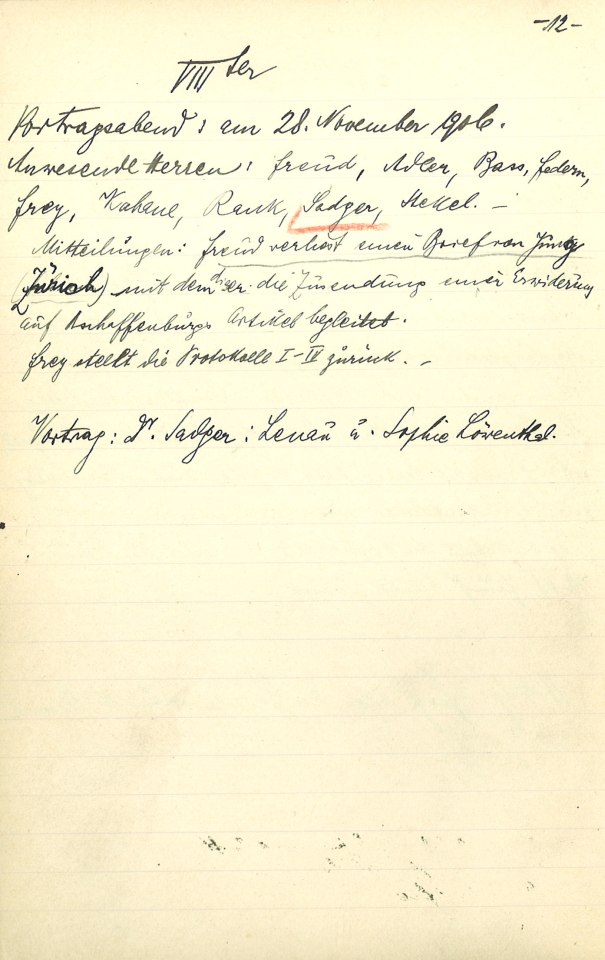 -12-
VIII ter
Vortragsabend: am 28. November 1906.
Anwesende Herren: Freud, Adler, Bass, Federn,
Frey, Kahane, Rank, Sadger, Stekel. —
Mitteilungen: Freud verliest einen Brief von Jung
(Zürich) mit dem dieser die Zusendung einer Erwiderung
auf Aschaffenburgs Artikel begleitet.
Frey stellt die Protokolle I-IV zurück. —
Vortrag: Dr. Sadger: Lenau u. Sophie Löwenthal.